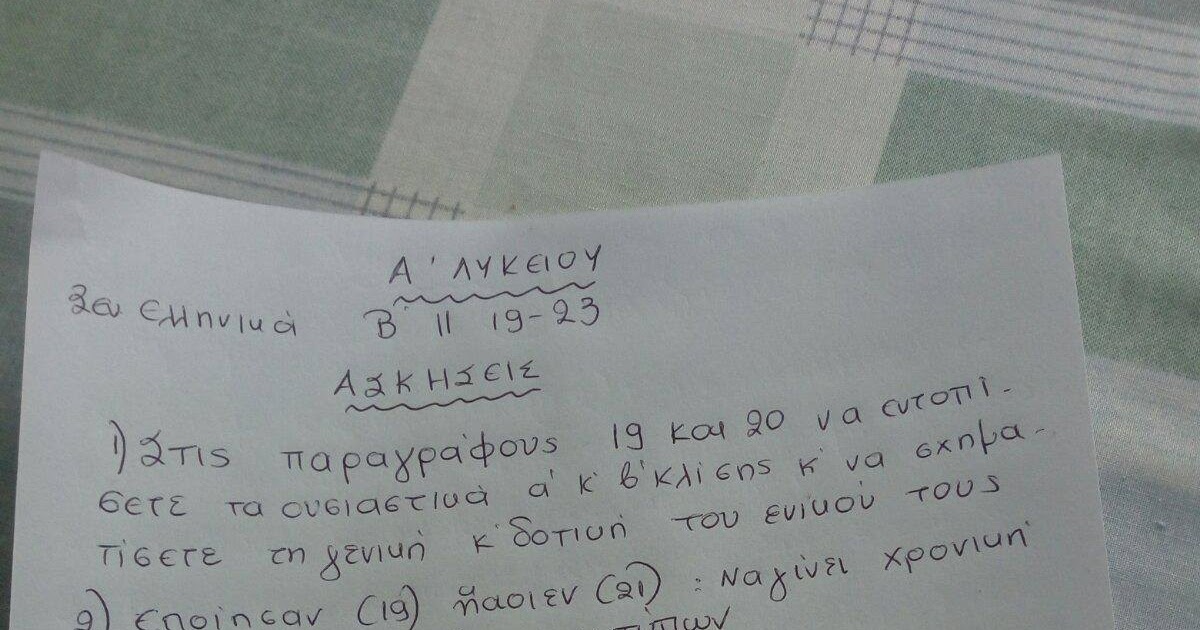 Α' ΛΥΚΕΙΟΥ
Ξεν Ελληνικά Β ΙΙ 19-23
ΑΣΚΗΣΕΙΣ
1) Στις παραγράφους 19 και 20 να εντοπί-
σετε τα ουσιαστικά α' κ' β' κλίσης κ' να σχημα-
τίσετε τη γενική κ' δοτική του ενικού τους
2) εποίησαν (19) (21) : Να γίνει χρονική
τύπων